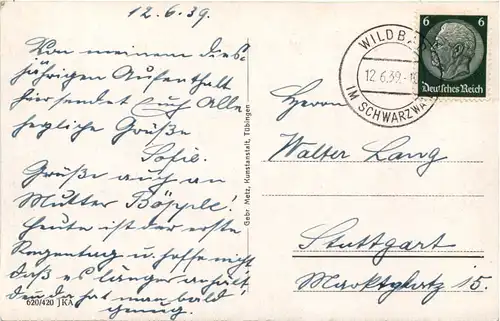 12.6.39.
Von meinem dies-
jährigen Aufenthalt
hier sendet Euch Alle
herzliche Grüße
Sofie.
Grüße auch an
Mutter Böpple!
Heute ist der erste
Regentag u. hoffe nicht
daß es länger anhält
denn da hat man bald
genug.
620/420 JKA
Gebr. Metz, Kunstanstalt, Tübingen
WILDBA
12.6.39.-1
IM SCHWARZWA
6 6
Deutsches Reich
Herrn
Walter Lang
Stuttgart
Marktplatz 15.